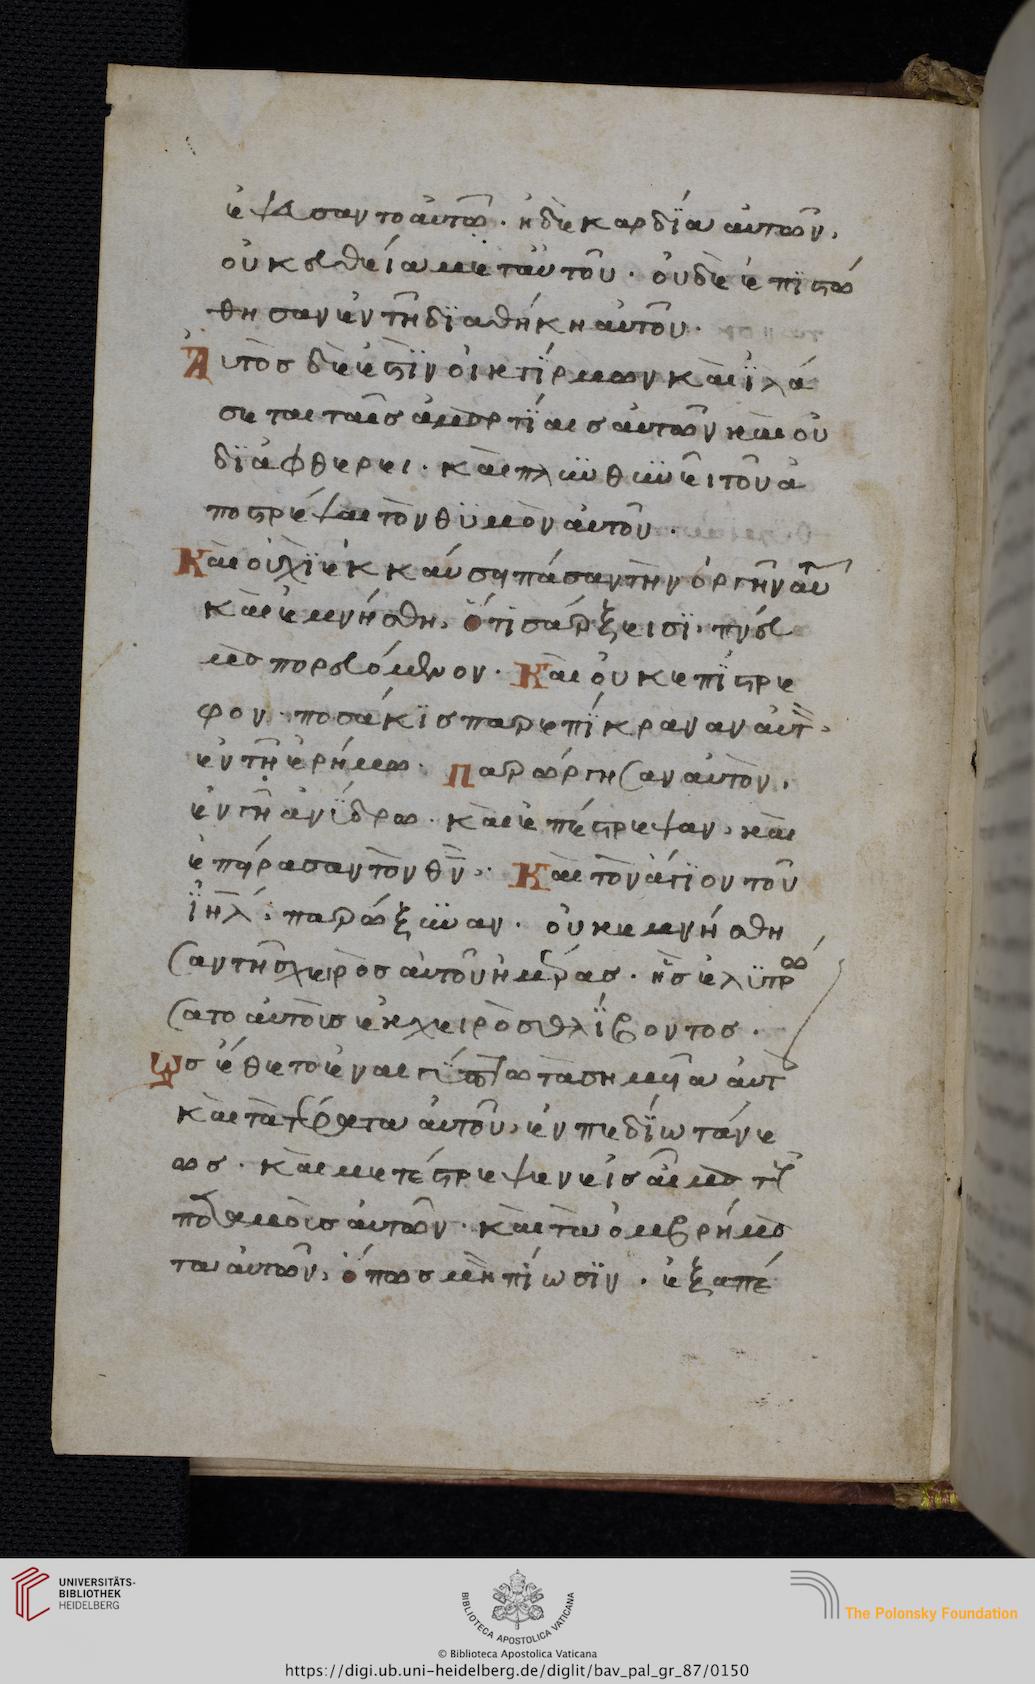 ἐψεύσαντο αὐτῶ· ἡ δὲ καρδία αὐτῶν,
οὐκ εὐθεία μετ' αὐτοῦ· οὐδὲ ἐπιστώ
θησαν ἐν τῆ διαθήκη αὐτοῦ·
Αὐτὸσ δὲ ἐστὶν οἰκτίρμων καὶ ἱλά
σεται ταῖσ ἁμαρτίαισ αὐτῶν καὶ οὐ
διαφθερει· καὶ πληθυνεῖ τοῦ ἀ
ποστρέψαι τὸν θυμὸν αὐτοῦ·
Καὶ οὐχὶ ἐκκαύσῃ πάσαν τὴν ὀργὴν αὐτοῦ
καὶ ἐμνήσθη, ὅτι σάρξ εισὶ, πνεῦ
μα πορευόμενον· Καὶ οὐκ ἐπίστρε
φον· ποσάκισ παρεπίκραναν αὐτὸν,
ἐν τῆ ἐρήμω· Παρώργησαν αὐτὸν,
ἐν γῆ ἀνίδρω· καὶ ἐπέστρεψαν, καὶ
ἐπήρασαν τὸν θν· Καὶ τὸν ἁγιον τοῦ
ιηλ· παρώξυναν· οὐκ ἐμνήσθη
σαν τῆσ χειρὸσ αὐτοῦ ἡμέρασ· ἧσ ἐλυτρώ
σατο αὐτοὺσ ἐκ χειρὸσ θλίβοντοσ·
Ὡσ ἔθετο ἐν αιγύπτω τὰ σημεῖα αὐτοῦ
καὶ τὰ τέρατα αὐτοῦ, ἐν πεδίω τάνε
ωσ· καὶ μετέστρεψεν εἰσ αἷμα τοὺσ
ποταμοὺσ αὐτῶν· καὶ τὰ ὀμβρήμα
τα αὐτῶν, ὅπωσ μὴ πίωσιν· ἐξαπέ
UNIVERSITÄTS-
BIBLIOTHEK
HEIDELBERG
BIBLIOTECA APOSTOLICA VATICANA
The Polonsky Foundation
© Biblioteca Apostolica Vaticana
https://digi.ub.uni-heidelberg.de/diglit/bav_pal_gr_87/0150